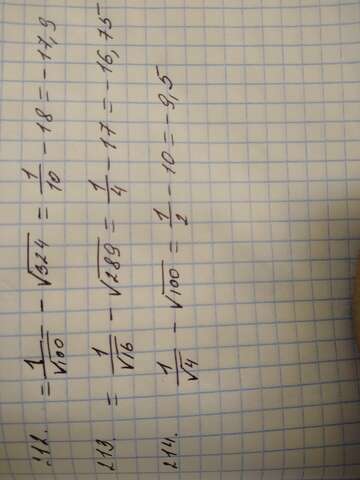 212. = 1/√100 - √324 = 1/10 - 18 = -17,9
213. = 1/√16 - √289 = 1/4 - 17 = -16,75
214. 1/√4 - √100 = 1/2 - 10 = -9,5